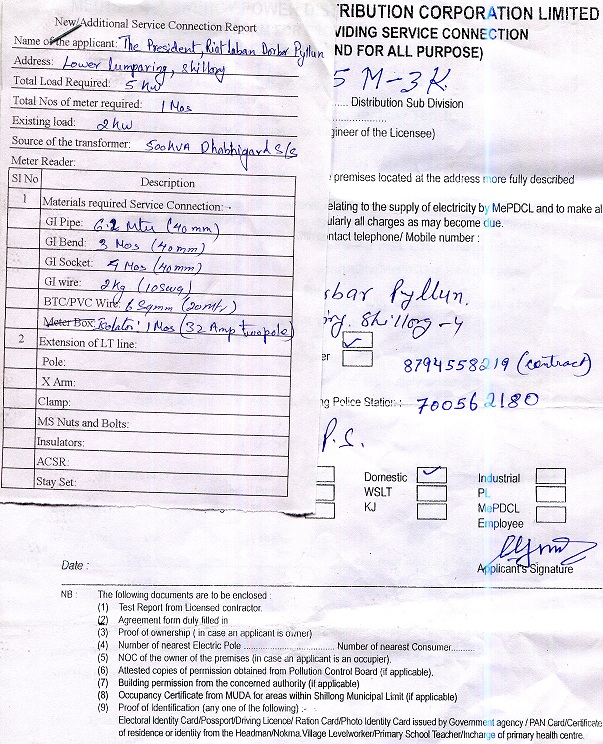 New/Additional Service Connection Report
Name of the applicant: The President, Riatlaban Dorbar Pyllun
Address: Lower Lumparing, Shillong
Total Load Required: 5 KW
Total Nos of meter required: 1 Nos
Existing load: 2 KW
Source of the transformer: 500KVA Dhobhigard S/S
Meter Reader:
Sl No Description
1 Materials required Service Connection:-
GI Pipe: 6.2 Mtr (40mm)
GI Bend: 3 Nos (40mm)
GI Socket: 4 Nos (40mm)
GI wire: 2kg (10swg)
BTC/PVC Wire: 6 Sqmm (20Mtr)
Meter Box: Isolator: 1 Nos (32 Amp twopole)
2 Extension of LT line:
Pole:
X Arm:
Clamp:
MS Nuts and Bolts:
Insulators:
ACSR:
Stay Set:
TRIBUTION CORPORATION LIMITED
VIDING SERVICE CONNECTION
ND FOR ALL PURPOSE)
5 M-3K.
..... Distribution Sub Division
gineer of the Licensee)
e premises located at the address more fully described
elating to the supply of electricity by MePDCL and to make al
ularly all charges as may become due.
ntact telephone/ Mobile number :
rbar Pyllun.
Shillong-4
er
8794558219 (contract)
ng Police Station : 700562180
P.S.
Domestic Industrial
WSLT PL
KJ MePDCL
Employee
Applicant's Signature
Date :
NB : The following documents are to be enclosed :
(1) Test Report from Licensed contractor.
(2) Agreement form duly filled in
(3) Proof of ownership ( in case an applicant is owner)
(4) Number of nearest Electric Pole .......................... Number of nearest Consumer.........
(5) NOC of the owner of the premises (in case an applicant is an occupier).
(6) Attested copies of permission obtained from Pollution Control Board (if applicable).
(7) Building permission from the concerned authority (if applicable)
(8) Occupancy Certificate from MUDA for areas within Shillong Municipal Limit (if applicable)
(9) Proof of Identification (any one of the following) :-
Electoral Identity Card/Possport/Driving Licence/ Ration Card/Photo Identity Card issued by Government agency / PAN Card/Certificate
of residence or identity from the Headman/Nokma.Village Levelworker/Primary School Teacher/Incharge of primary health centre.